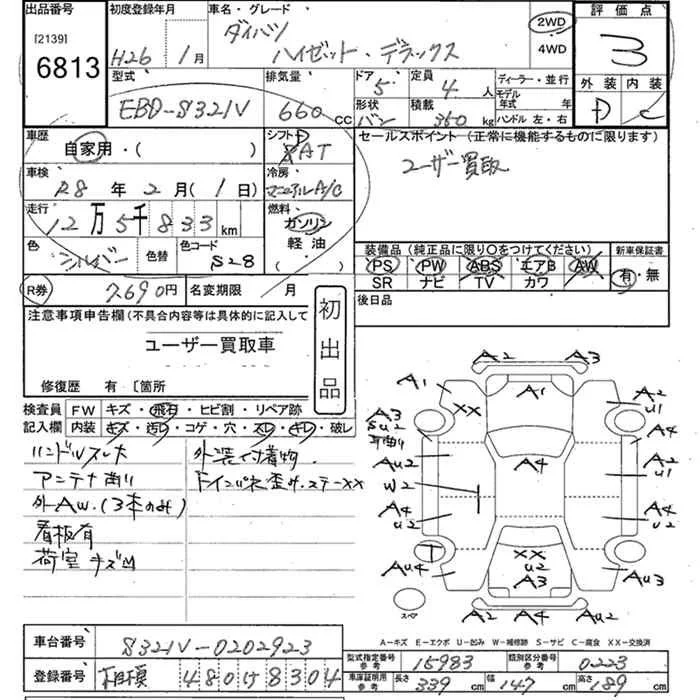 出品番号 初度登録年月 車名・グレード 評価点
[2139] ダイハツ 2WD
6813 H26年 1月 ハイゼット・デラックス 4WD 3
型式 排気量 ドア 定員 ディーラー・並行 外装 内装
EBD-S321V 660 CC 5 4人 モデル年式 年 D C
形状 バン 積載 350kg ハンドル 左・右
車歴 シフト セールスポイント(正常に機能するものに限ります)
自家用・( ) AT ユーザー買取
車検 冷房
R8年2月(1日) マニュアルA/C
走行 燃料
12万5千833km ガソリン
色 シルバー 色替 色コード S28 軽油 ( )
装備品(純正品に限り○をつけてください) 新車保証書
PS PW ABS エアB AW 有・無
SR ナビ TV カワ
R券 7690円 名変期限 月 後日品
注意事項申告欄(不具合内容等は具体的に記入して 初出品
ユーザー買取車
修復歴 有〔箇所
検査員 FW キズ・飛石・ヒビ割・リペア跡
記入欄 内装 キズ・汚レ・コゲ・穴・スレ・キレ・破レ
ハンドルスレ大 外装付着物.
アンテナ曲り
外AW.(3本のみ)
看板有
荷室キズ凹
A2 A3
A1 A1 A2
XX U1
A3 A4
SU2
AU2 A4 A2
U1
W2
A4 A4
U2 U2
XX
U2
AU4 A3 AU3
A2 A4 AU2
スペア
A-キズ E-エクボ U-凹み W-補修跡 S-サビ C-腐食 XX-交換済
車台番号 S321V-0202923
型式指定番号 参考 15983 類別区分番号 参考 0223
登録番号 相模 480
車庫証明用 参考 長さ 339cm 幅 147cm 高さ 189cm